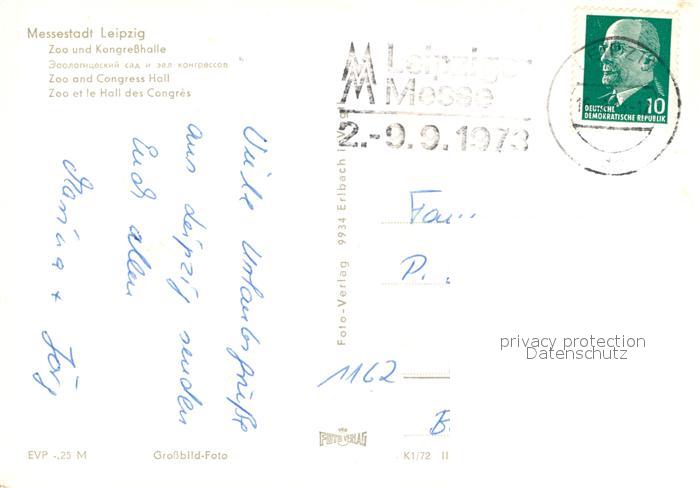 Messestadt Leipzig
Zoo und Kongreßhalle
Зоологический сад и зал конгрессов
Zoo and Congress Hall
Zoo et le Hall des Congrès
Viele Urlaubsgrüße
aus Leipzig senden
Euch allen
Marina + Jörg
EVP -.25 M
Großbild-Foto
Foto-Verlag 9934 Erlbach
MM Leipziger
Messe
2.-9.9.1973
10
DEUTSCHE
DEMOKRATISCHE REPUBLIK
Fam.
P.
1162
B
privacy protection
Datenschutz
FOTO VERLAG
K1/72 II